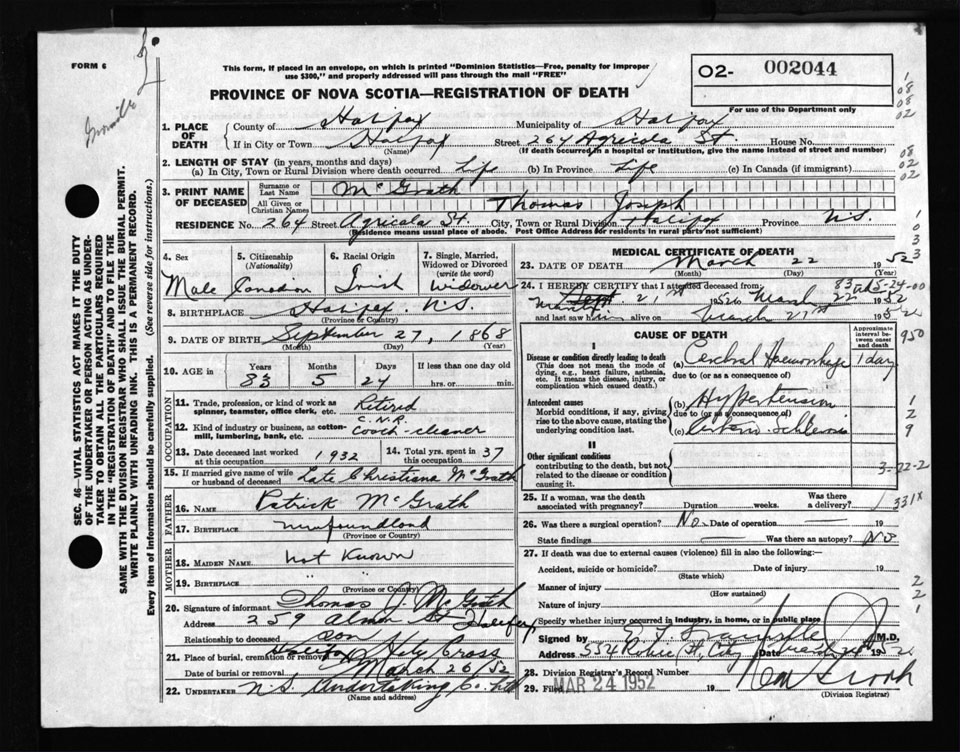 FORM 6
This form, if placed in an envelope, on which is printed "Dominion Statistics—Free, penalty for improper
use $300," and properly addressed will pass through the mail "FREE"
PROVINCE OF NOVA SCOTIA—REGISTRATION OF DEATH
02- 002044
For use of the Department only
1. PLACE OF DEATH
County of Halifax Municipality of Halifax
If in City or Town Halifax Street 264 Agricola St. House No.
(Name) (If death occurred in a hospital or institution, give the name instead of street and number)
2. LENGTH OF STAY (in years, months and days)
(a) In City, Town or Rural Division where death occurred Life (b) In Province Life (c) In Canada (if immigrant)
3. PRINT NAME OF DECEASED
Surname or Last Name McGrath
All Given or Christian Names Thomas Joseph
RESIDENCE No. 264 Street Agricola St. City, Town or Rural Division Halifax Province N.S.
(Residence means usual place of abode. Post Office Address for residents in rural parts not sufficient)
4. Sex Male
5. Citizenship (Nationality) Canadian
6. Racial Origin Irish
7. Single, Married, Widowed or Divorced (write the word) Widower
8. BIRTHPLACE Halifax N.S.
(Province or Country)
9. DATE OF BIRTH September 27, 1868
(Month) (Day) (Year)
10. AGE in Years Months Days If less than one day old
83 5 24 hrs. or min.
OCCUPATION
11. Trade, profession, or kind of work as spinner, teamster, office clerk, etc. Retired
12. Kind of industry or business, as cotton-mill, lumbering, bank, etc. C.N.R. Coach-cleaner
13. Date deceased last worked at this occupation 1932
14. Total yrs. spent in this occupation 37
15. If married give name of wife or husband of deceased Late Christiana McGrath
FATHER
16. NAME Patrick McGrath
17. BIRTHPLACE Newfoundland
(Province or Country)
MOTHER
18. MAIDEN NAME Not Known
19. BIRTHPLACE
(Province or Country)
20. Signature of informant Thomas J. McGrath
Address 259 Almon St Halifax
Relationship to deceased Son
21. Place of burial, cremation or removal Halifax Holy Cross
Date of burial or removal March 26/52
22. UNDERTAKER N.S. Undertaking Co. Ltd
(Name and address)
MEDICAL CERTIFICATE OF DEATH
23. DATE OF DEATH March 22 1952
(Month) (Day) (Year)
24. I HEREBY CERTIFY that I attended deceased from:
21st 1952 to March 22 1952
and last saw him alive on March 21st 1952
CAUSE OF DEATH
Approximate interval between onset and death
I
Disease or condition directly leading to death
(This does not mean the mode of dying, e.g., heart failure, asthenia, etc. It means the disease, injury, or complication which caused death.)
(a) Cerebral Haemorrhage 1 day
due to (or as a consequence of)
Antecedent causes
Morbid conditions, if any, giving rise to the above cause, stating the underlying condition last.
(b) Hypertension
due to (or as a consequence of)
(c) Arterio-Schlerosis
II
Other significant conditions
contributing to the death, but not related to the disease or condition causing it.
25. If a woman, was the death associated with pregnancy? Duration weeks. Was there a delivery?
26. Was there a surgical operation? No Date of operation — 19
State findings — Was there an autopsy? No
27. If death was due to external causes (violence) fill in also the following:—
Accident, suicide or homicide? Date of injury 19
(State which)
Manner of injury
(How sustained)
Nature of injury
Specify whether injury occurred in industry, in home, or in public place
Signed by M.D.
Address 554 Robie St, City Date March 24 1952
28. Division Registrar's Record Number
29. Filed MAR 24 1952 19
(Division Registrar)
SEC. 46—VITAL STATISTICS ACT MAKES IT THE DUTY
OF THE UNDERTAKER OR PERSON ACTING AS UNDERTAKER TO OBTAIN ALL THE PARTICULARS REQUIRED
IN THE "REGISTRATION OF DEATH" AND TO FILE THE
SAME WITH THE DIVISION REGISTRAR WHO SHALL ISSUE THE BURIAL PERMIT.
WRITE PLAINLY WITH UNFADING INK. THIS IS A PERMANENT RECORD.
Every item of information should be carefully supplied. (See reverse side for instructions.)